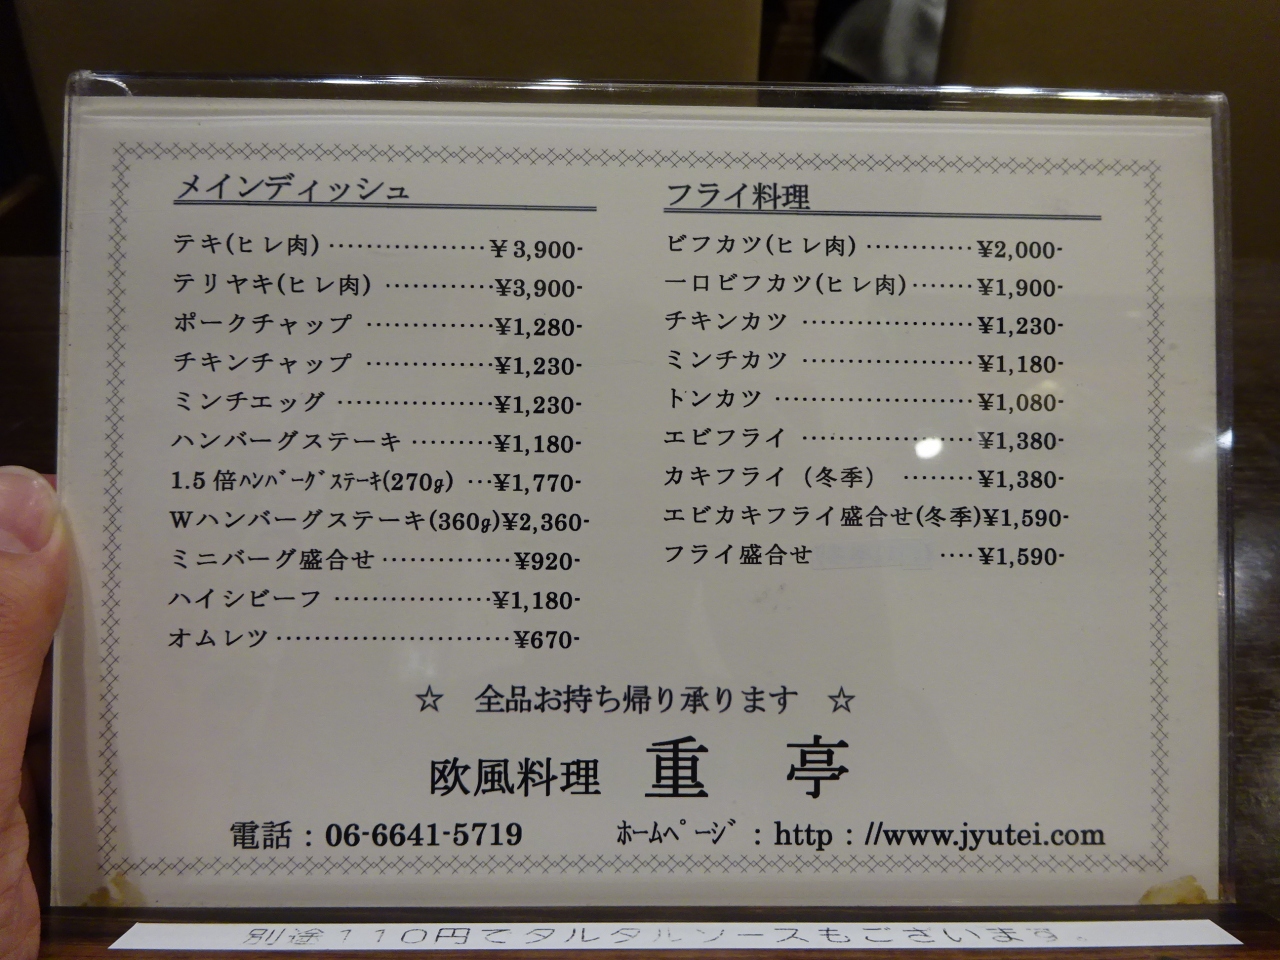 メインディッシュ
テキ(ヒレ肉) ················· ¥3,900-
テリヤキ(ヒレ肉) ············ ¥3,900-
ポークチャップ ·············· ¥1,280-
チキンチャップ ·············· ¥1,230-
ミンチエッグ ················· ¥1,230-
ハンバーグステーキ ········· ¥1,180-
1.5倍ﾊﾝﾊﾞｰｸﾞｽﾃｰｷ(270g) ··· ¥1,770-
Wハンバーグステーキ(360g)¥2,360-
ミニバーグ盛合せ ·············· ¥920-
ハイシビーフ ················· ¥1,180-
オムレツ ························· ¥670-
フライ料理
ビフカツ(ヒレ肉) ············ ¥2,000-
一口ビフカツ(ヒレ肉) ······· ¥1,900-
チキンカツ ··················· ¥1,230-
ミンチカツ ··················· ¥1,180-
トンカツ ······················ ¥1,080-
エビフライ ··················· ¥1,380-
カキフライ（冬季） ········ ¥1,380-
エビカキフライ盛合せ(冬季)¥1,590-
フライ盛合せ ···· ¥1,590-
☆ 全品お持ち帰り承ります ☆
欧風料理 重 亭
電話：06-6641-5719 ﾎｰﾑﾍﾟｰｼﾞ：http：//www.jyutei.com
別途110円でタルタルソースもございます。